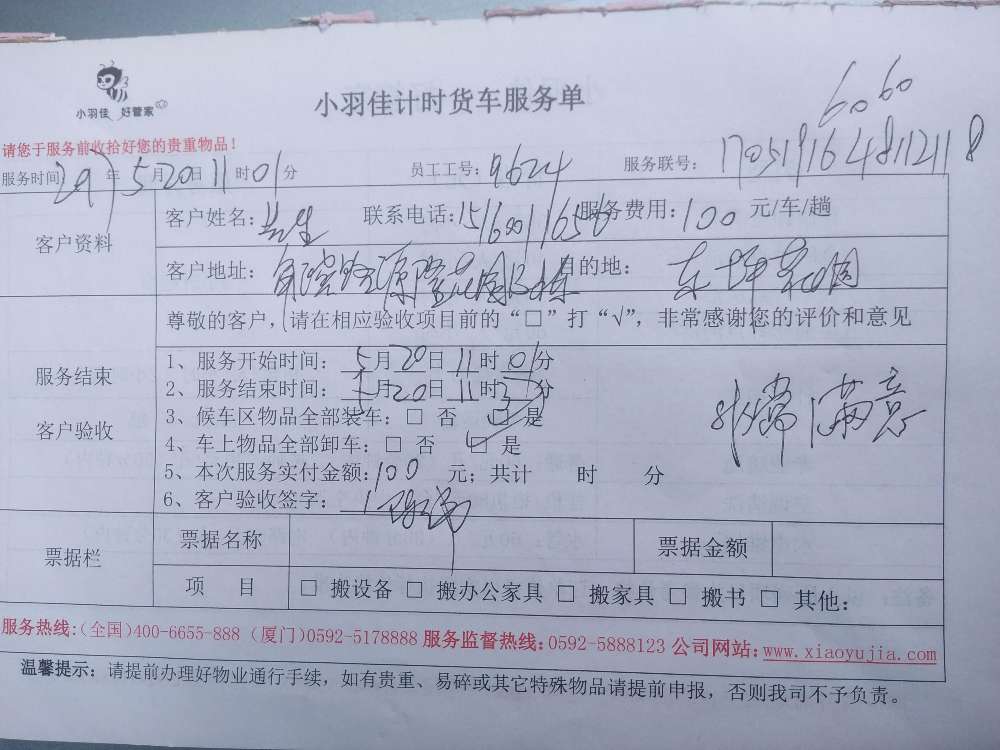 小羽佳 好管家
小羽佳计时货车服务单
60 60
请您于服务前收拾好您的贵重物品!
服务时间 年5月20日11时01分 员工工号:9624 服务联号:
客户资料
客户姓名: 联系电话: 服务费用:100元/车/趟
客户地址: 目的地:东坪花园
尊敬的客户,请在相应验收项目前的“□”打“√”,非常感谢您的评价和意见
服务结束
客户验收
1、服务开始时间:5月20日11时01分
2、服务结束时间: 月20日11时 分
3、候车区物品全部装车:□ 否 □ 是
4、车上物品全部卸车:□ 否 □ 是
5、本次服务实付金额:100元;共计 时 分
6、客户验收签字:
非常满意
票据栏
票据名称 票据金额
项 目 □ 搬设备 □ 搬办公家具 □ 搬家具 □ 搬书 □ 其他:
服务热线:(全国)400-6655-888 (厦门)0592-5178888 服务监督热线:0592-5888123 公司网站:www.xiaoyujia.com
温馨提示:请提前办理好物业通行手续,如有贵重、易碎或其它特殊物品请提前申报,否则我司不予负责。